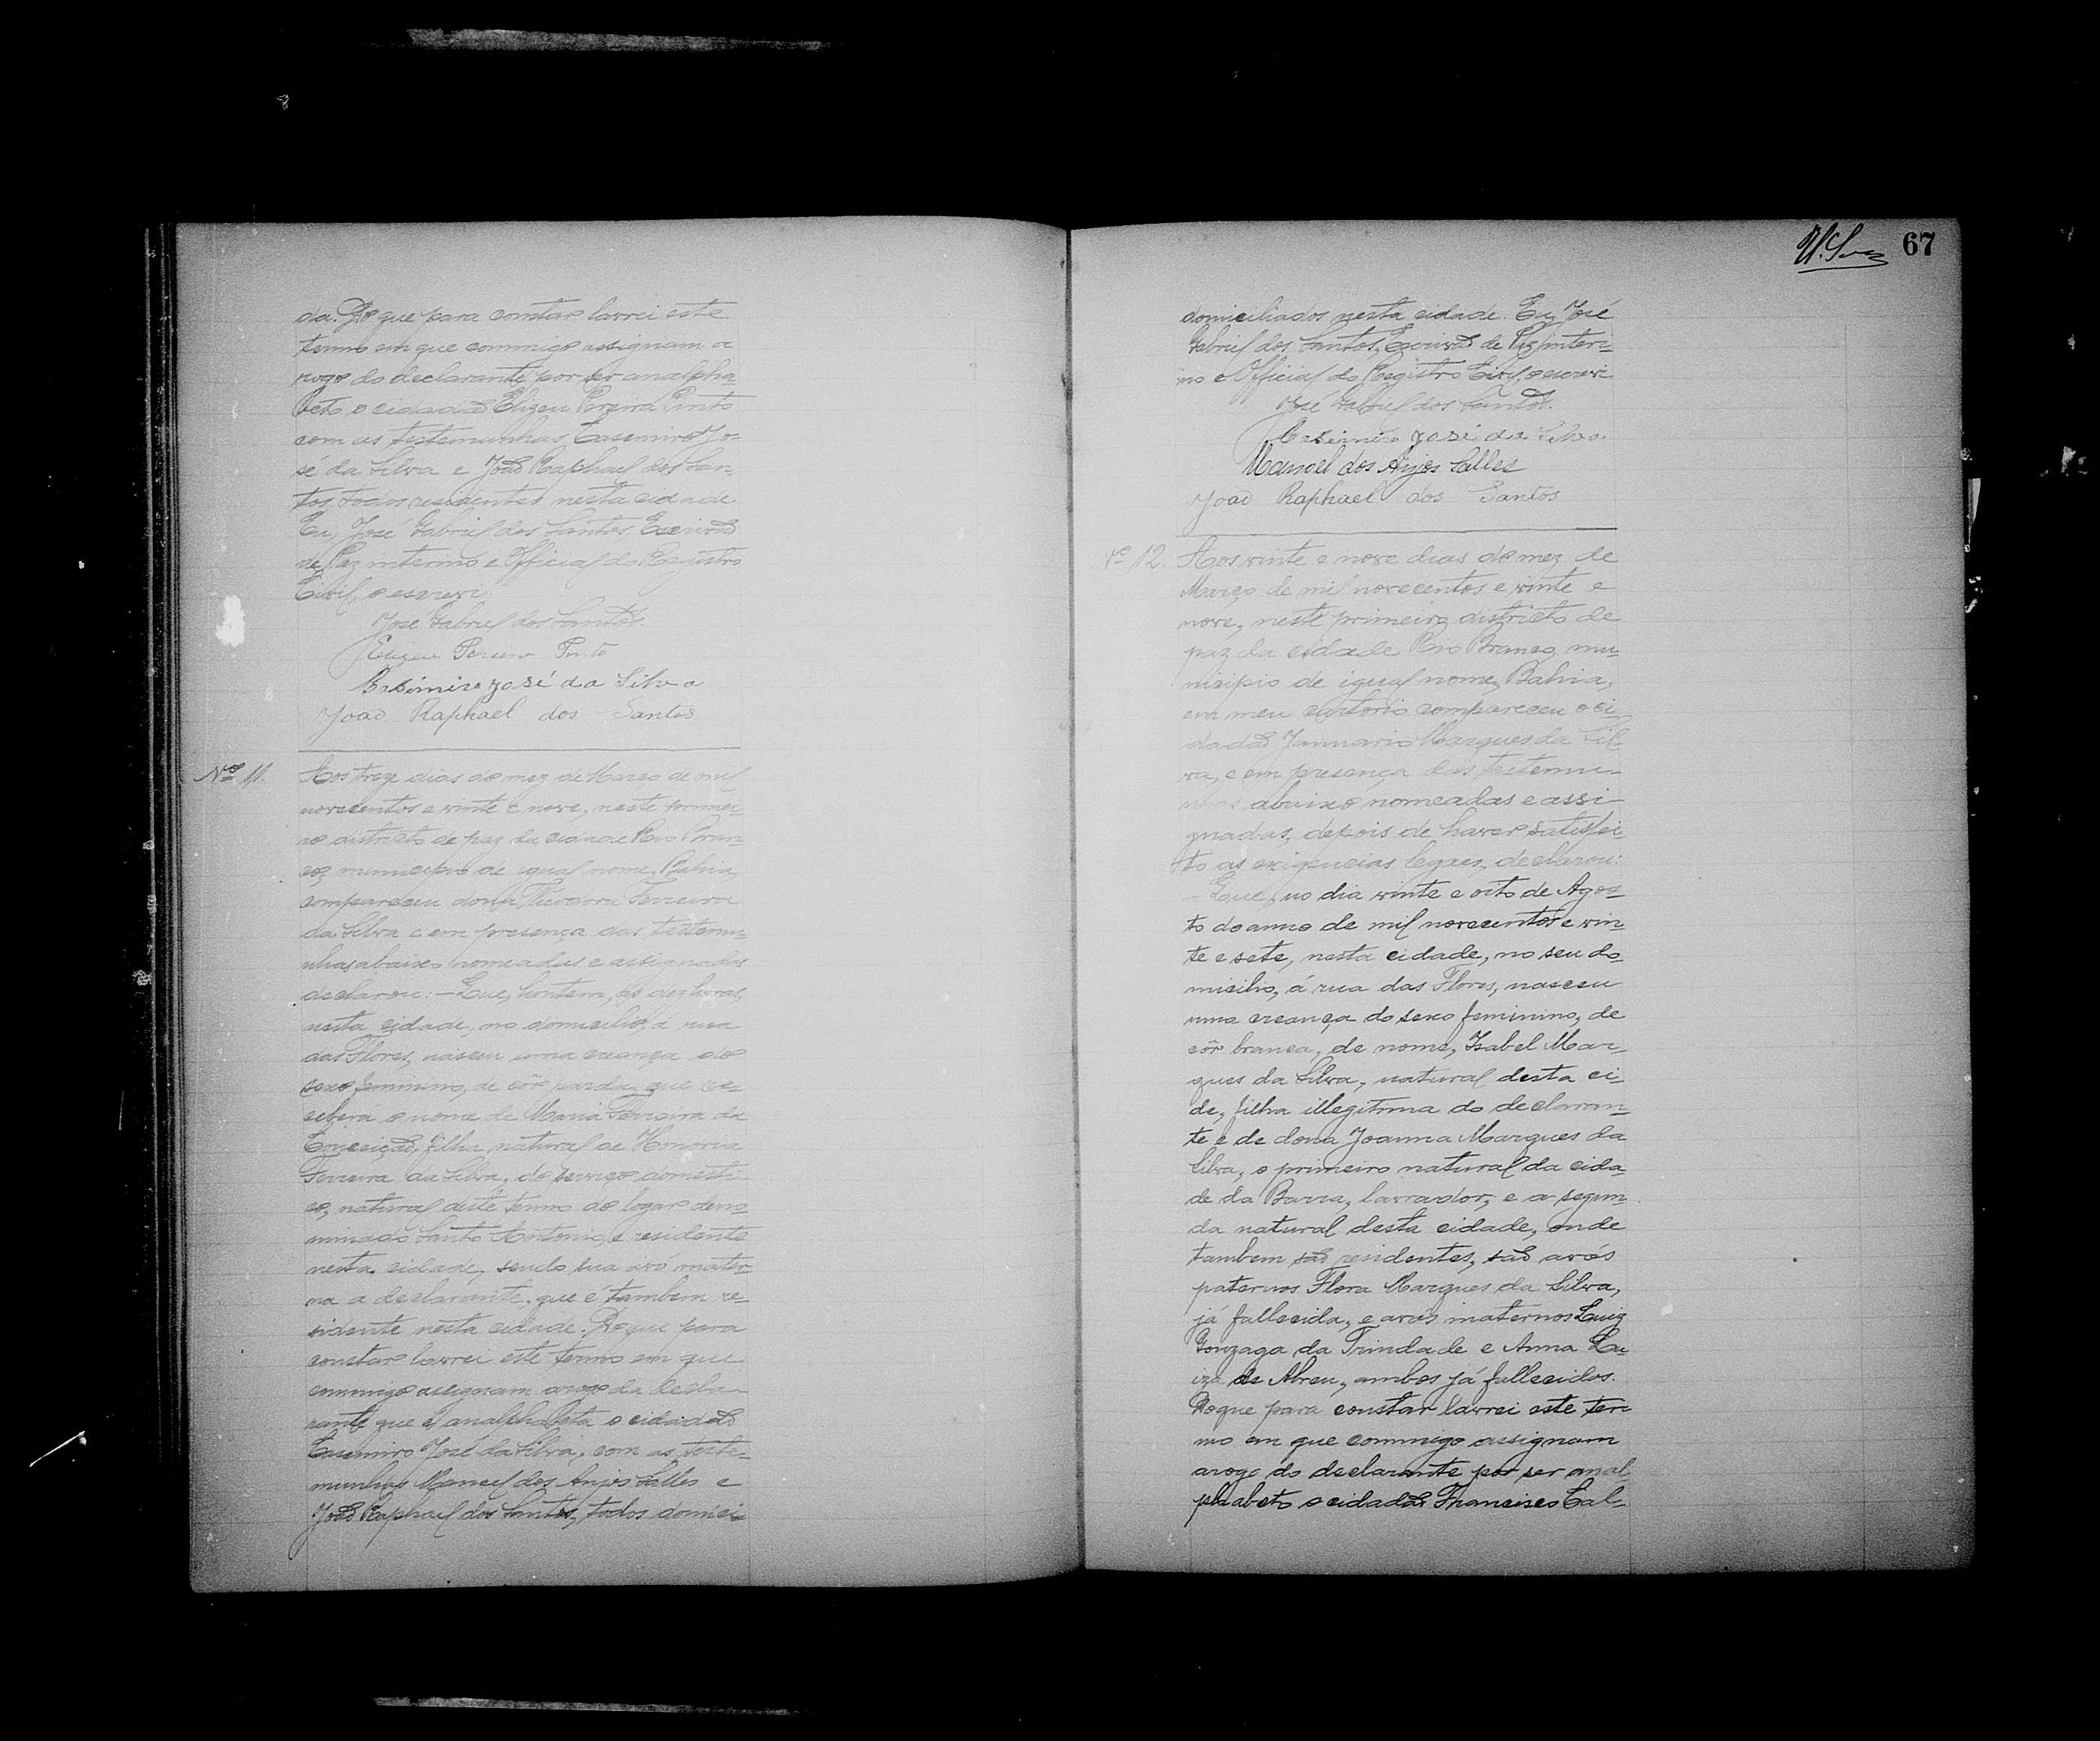 da. Do que para constar lavrei este
termo em que commigo assignam a
rogo do declarante por ser analpha-
beto o cidadão Elizeu Pereira Pinto
com as testemunhas Casemiro Jo-
sé da Silva e João Raphael dos San-
tos, todos residentes nesta cidade.
Eu, José Gabriel dos Santos, Escrivão
de Paz interino e Official do Registro
Civil, o escrevi.
José Gabriel dos Santos.
Elizeu Pereira Pinto
Casimiro José da Silva
João Raphael dos Santos
Nº 11. Aos treze dias do mez de Março de mil
novecentos e vinte e nove, neste primei-
ro districto de paz da cidade Rio Bran-
co, municipio de igual nome, Bahia,
compareceu dona Theodora Ferreira
da Silva e em presença das testemu-
nhas abaixo nomeadas e assignadas
declarou: – Que, hontem, ás dez horas,
nesta cidade, no domicilio, a rua
das Flores, nasceu uma creança do
sexo feminino, de côr parda, que re-
ceberá o nome de Maria Ferreira da
Conceição, filha natural de Honoria
Ferreira da Silva, do serviço domesti-
co, natural deste termo do logar deno-
minado Santo Antonio, e residente
nesta cidade, sendo sua avó mater-
na a declarante, que é tambem re-
sidente nesta cidade. Do que para
constar lavrei este termo em que
commigo assignam arogo da decla-
rante que é analphabeta o cidadão
Casemiro José da Silva, com as teste-
munhas Manoel dos Anjos Salles e
João Raphael dos Santos, todos domici-
67
domiciliados nesta cidade. Eu, José
Gabriel dos Santos, Escrivão de Paz interi-
no e Official do Registro Civil, o escrevi
José Gabriel dos Santos.
Casimiro José da Silva
Manoel dos Anjos Salles
João Raphael dos Santos
Nº 12. Aos vinte e nove dias do mez de
Março de mil novecentos e vinte e
nove, neste primeiro districto de
paz da cidade Rio Branco, mu-
nicipio de igual nome, Bahia,
em meu cartorio compareceu o ci-
dadão Jannario Marques da Sil-
va, e em presença das testemu-
nhas abaixo nomeadas e assi-
gnadas, depois de haver satisfei-
to as exigencias legaes, declarou:
– Que, no dia vinte e oito de Agos-
to do anno de mil novecentos e vin-
te e sete, nesta cidade, no seu do-
micilio, á rua das Flores, nasceu
uma creança do sexo feminino, de
côr branca, de nome, Izabel Mar-
ques da Silva, natural desta ci-
de, filha illegitima do declaran-
te e de dona Joanna Marques da
Silva, o primeiro natural da cida-
de da Barra, lavrador, e a segun-
da natural desta cidade, onde
tambem são residentes, são avós
paternos Flora Marques da Silva,
já fallecida, e avós maternos Luiz
Gonzaga da Trindade e Anna Lu-
iza de Abreu, ambos já fallecidos.
Do que para constar lavrei este ter-
mo em que commigo assignam
arogo do declarante por ser anal-
phabeto o cidadão Francisco Cal-